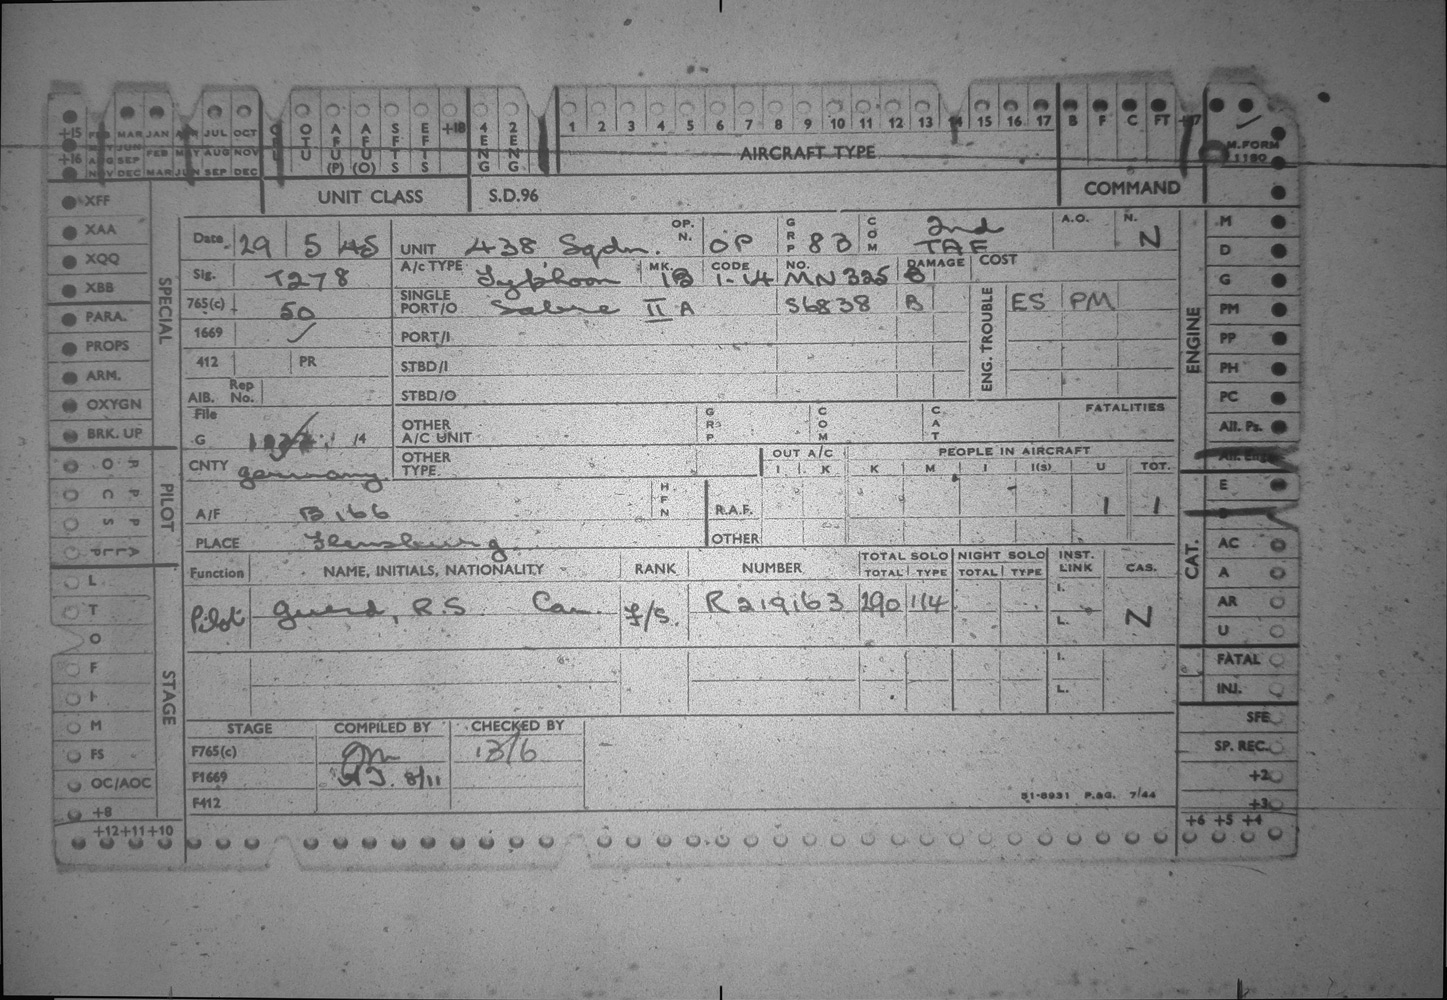 +15 FEB MAR JAN APR JUL OCT
MAY JUN FEB MAY AUG NOV
+16 AUG SEP
NOV DEC MAR JUN SEP DEC
OTU AFU(P) AFU(O) SFTS EFTS +18
4 ENG 2 ENG.
1 2 3 4 5 6 7 8 9 10 11 12 13 14 15 16 17
B F C FT +17
AIRCRAFT TYPE
M.FORM 1180
UNIT CLASS S.D.96 COMMAND
XFF
XAA
XQQ
XBB
PARA.
PROPS
ARM.
OXYGN
BRK. UP
SPECIAL
PILOT
L
T
O
F
I
M
FS
OC/AOC
+8
+12 +11 +10
STAGE
Date 29 5 45 UNIT 438 Sqdn. OP. N. OP GRP 83 COM 2nd TAF A.O. N. N
Sig. T278 A/c TYPE Typhoon MK. 1B CODE 1-14 NO. MN 325 DAMAGE B COST
765(c) 50 SINGLE PORT/O Sabre II A S6838 B ENG. TROUBLE ES PM
1669 ✓ PORT/I
412 PR STBD/I
AIB. Rep No. STBD/O
File G /4 OTHER A/C UNIT GRP COM CAT FATALITIES
CNTY Germany OTHER TYPE. OUT A/C PEOPLE IN AIRCRAFT
I K K M I I(S) U TOT.
A/F B166 HFN R.A.F. 1 1
PLACE Flensburg OTHER
Function NAME, INITIALS, NATIONALITY RANK NUMBER TOTAL SOLO NIGHT SOLO INST. LINK CAS.
TOTAL TYPE TOTAL TYPE
Pilot R.S. Can. F/S. R219163 290 114 I. L. N
I.
L.
STAGE COMPILED BY CHECKED BY
F765(c) 13/6
F1669 8/11
F412
51-8931 P.&G. 7/44
M
D
G
PM
PP
PH
PC
All. Ps.
E
ENGINE
AC
A
AR
U
CAT.
FATAL
INJ.
SFE
SP. REC.
+2
+3
+6 +5 +4